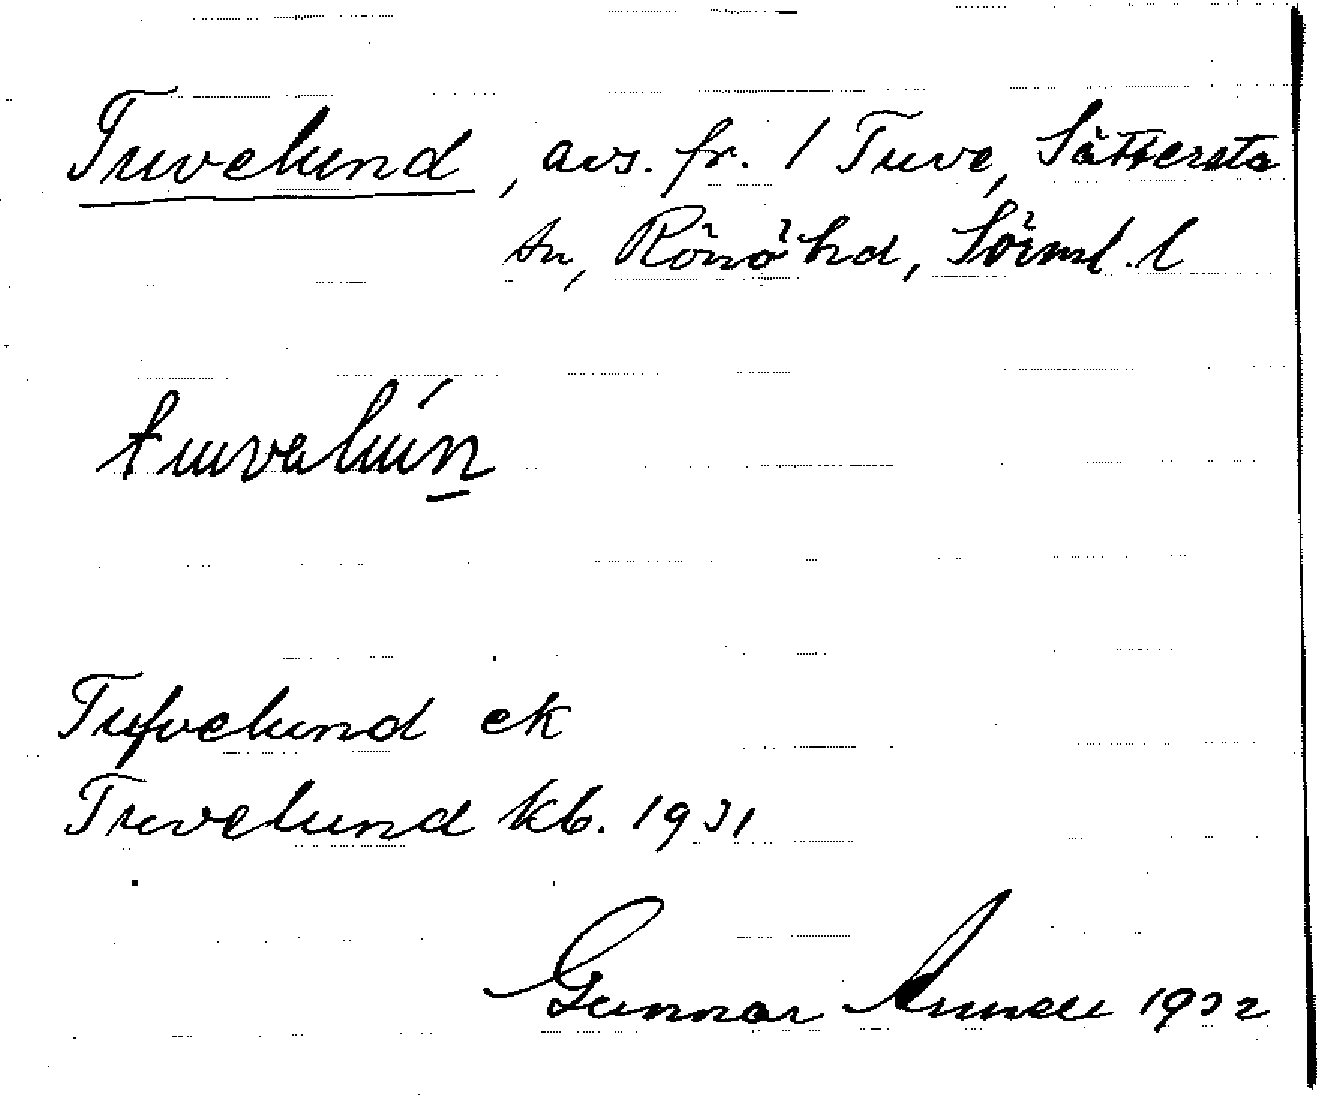 Tuvelund, avs. fr. 1 Tuve, Sättersta
sn, Rönö hd, Sörml. l
tuvalún
Tufvelund ek
Tuvelund kb. 1931
Gunnar 1932